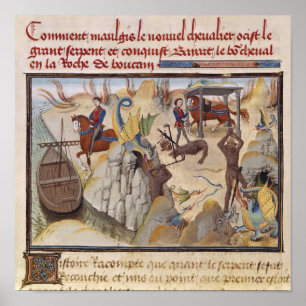 Comment maulgis le nouuel cheualier ocist le
grant serpent et conquist Baiart le bō cheual
en la Roche de boucain
Istoire racompte que quant le serpent se fut
couchie et mis au point que premier estoit